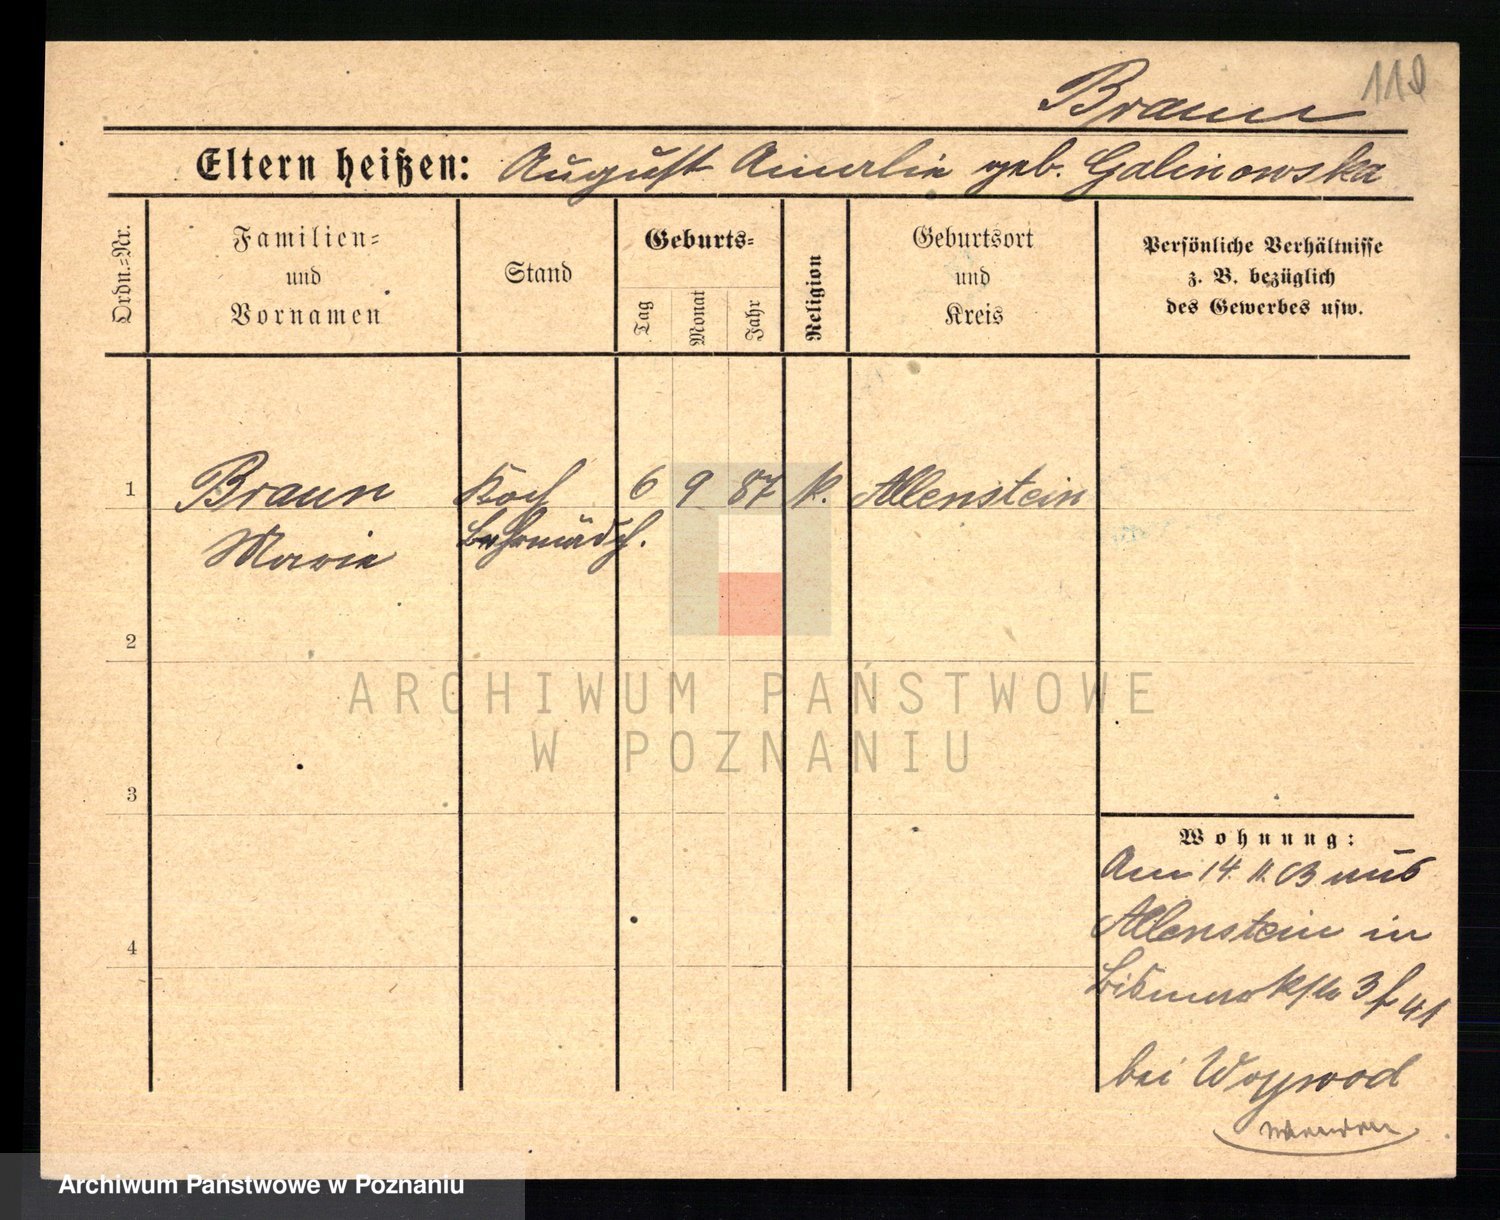 Braun
Eltern heißen: August Amalie geb. Galinowska
Ordn.=Nr.
Familien=
und
Vornamen
Stand
Geburts=
Tag
Monat
Jahr
Religion
Geburtsort
und
Kreis
Persönliche Verhältnisse
z. B. bezüglich
des Gewerbes usw.
1
Braun
Marie
Koch
Lehrmädch.
6
9
87
k.
Allenstein
2
3
4
Wohnung:
Am 14. 11. 03 aus
Allenstein in
Bismarckstr 3
bei Woywod
wenden
ARCHIWUM PAŃSTWOWE
W POZNANIU
Archiwum Państwowe w Poznaniu